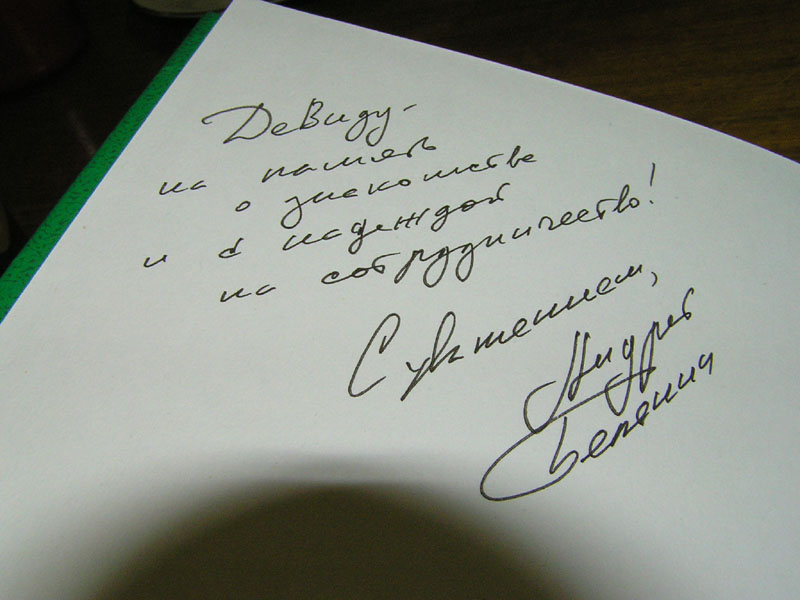 Девиду-
на память
о знакомстве
и с надеждой
на сотрудничество!
С уважением,
Андрей